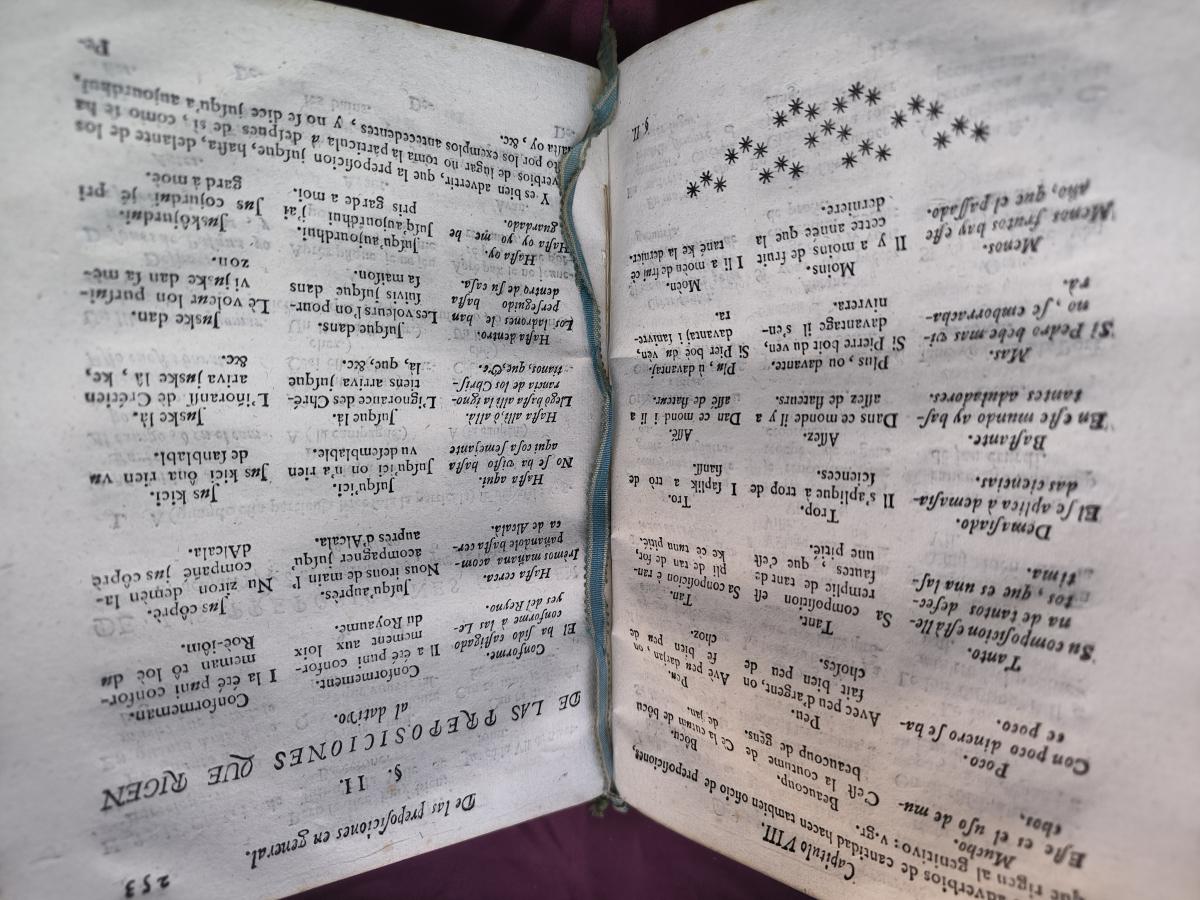 Capitulo VIII.
adverbios de cantidad hacen tambien oficio de prepoſiciones,
que rigen al genitivo: v.gr.
Mucho.
Eſte es el uſo de mu-
chos.
Beaucoup.
Ceſt la coutume de
beaucoup de gens.
Bôcu.
Ce la cutum de bôcu
de jan.
Poco.
Con poco dinero ſe ha-
ce poco.
Peu.
Avec peu d'argent, on
fait bien peu de
choſes.
Peu.
Avè peu darjan, on
fè bien peu de
choz.
Tanto.
Su compoſicion eſtà lle-
na de tantos defec-
tos, que es una laſ-
tima.
Tant.
Sa compoſition eſt
remplie de tant de
fautes, que c'eſt
une pitié.
Tan.
Sa conpoſicion è ran-
pli de tan de fot,
ke ce tunu pitié.
Demaſiado.
El ſe aplica à demaſia-
das ciencias.
Trop.
Il s'aplique à trop de
ſciences.
Tro.
I ſaplik a trò de
ſianſſ.
Baſtante.
En eſte mundo ay baſ-
tantes aduladores.
Aſſez.
Dans ce monde il y a
aſſez de flateurs.
Aſſé.
Dan ce mond i li a
aſſe de flateur.
Mas.
Si Pedro bebe mas vi-
no, ſe emborracha-
rà.
Plus, ou davante.
Si Pierre boit du ven,
davantage il s'en-
nivrera.
Plu, ù davantaj.
Si Pier boè du vèn,
davantaj i ſanivre-
ra.
Menos.
Menos frutos hay eſte
año, que el paſſado.
Moins.
Il y a moins de fruit
cette année que la
derniere.
Moen.
I a li moen de frui cè
tané ke la dernier.
§. II.
253
De las prepoſiciones en general.
§. II.
DE LAS PREPOSICIONES QUE RIGEN
al dativo.
Conforme.
El ha ſido caſtigado
conforme à las Le-
yes del Reyno.
Conformement.
Il a été puni confor-
mement aux loix
du Royaume.
Conformeman.
I la été puni confor-
meman tô loè du
Roè-iôm.
Haſta cerca.
Irèmos mañana acom-
pañandole haſta cer-
ca de Alcalà.
Juſqu'auprès.
Nous irons de main l'
acompagner juſqu'
auprès d'Alcala.
Jus ôprè.
Nu ziron demen la-
compañé jus ôprè
dAlcala.
Haſta aqui.
No ſe ha viſto haſta
aqui coſa ſemejante
Juſqu'ici.
Juſqu'ici on n'a rien
vu de ſemblable.
Jus kici.
Jus kici ôna rien vu
de ſanblabl.
Haſta alli, ò allà.
Llegò haſta alli la igno-
rancia de los Chriſ-
tianos, que, &c.
Juſque là.
L'ignorance des Chré-
tiens arriva juſque
là, que, &c.
Juske là.
L'iñoranſſ dè Crétien
ariva juske là, ke,
&c.
Haſta dentro.
Los ladrones le han
perſeguido haſta
dentro de ſu caſa.
Juſque dans.
Les voleurs l'on pour-
ſuivis juſque dans
ſa maiſon.
Juske dan.
Lè voleur lon purſui-
vi juske dan ſa mè-
zon.
Haſta oy.
Haſta oy yo me he
guardado.
Juſqu'aujourdhui.
Juſqu'aujourdhui j'ai
pris garde a moi.
Juskôjurdui.
Jus cojurdui jé pri
gard à moè.
Y es bien advertir, que la prepoſicion juſque, haſta, delante de los
verbios de lugar no toma la particula à deſpues de si, como ſe ha
to por los exemplos antecedentes, y no ſe dice juſqu'a aujourdhui,
haſta oy, &c.
Pe-